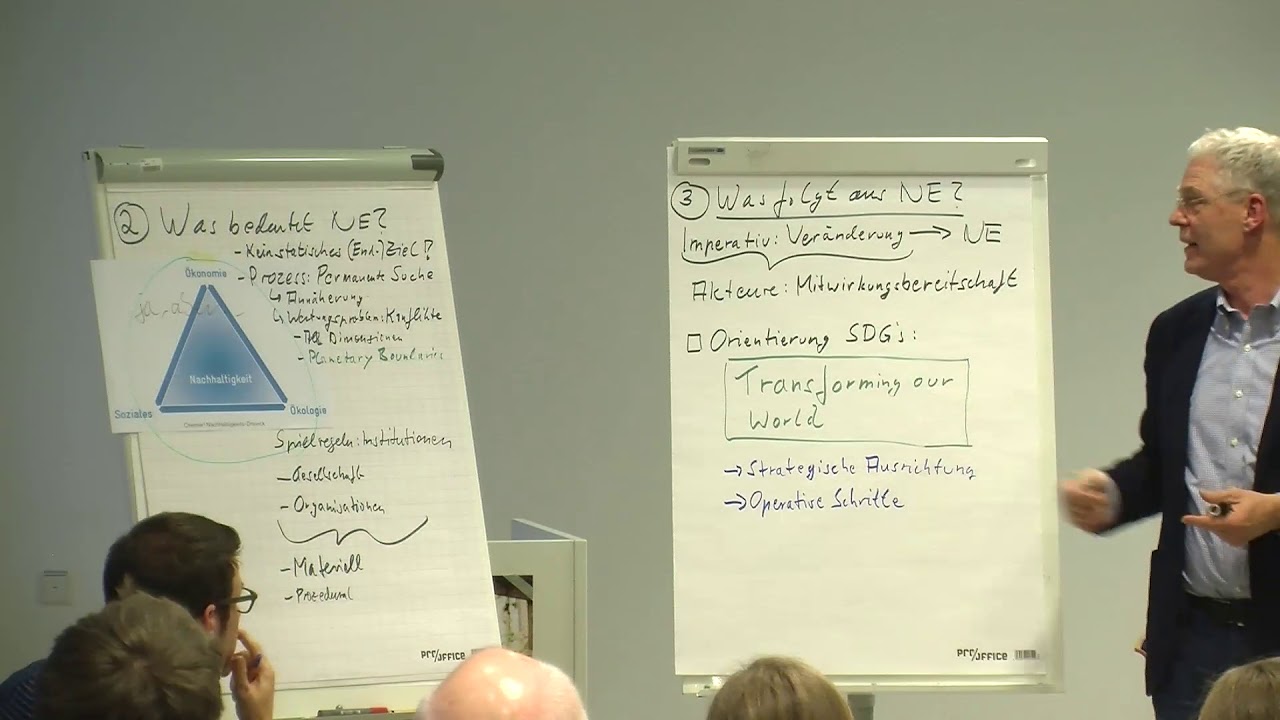 ② Was bedeutet NE?
- Kein statisches (End-) Ziel!?
- Prozess: Permanente Suche
↳ Annäherung
↳ Wertungsproblem: Konflikte
- Dimensionen
- Planetary Boundaries
ja, aber
Ökonomie
Nachhaltigkeit
Soziales
Ökologie
Spielregeln: Institutionen
- Gesellschaft
- Organisationen
- Materiell
- Prozedural
PRO/OFFICE
③ Was folgt aus NE?
Imperativ: Veränderung → NE
Akteure: Mitwirkungsbereitschaft
□ Orientierung SDG's:
Transforming our
World
→ Strategische Ausrichtung
→ Operative Schritte
PRO/OFFICE